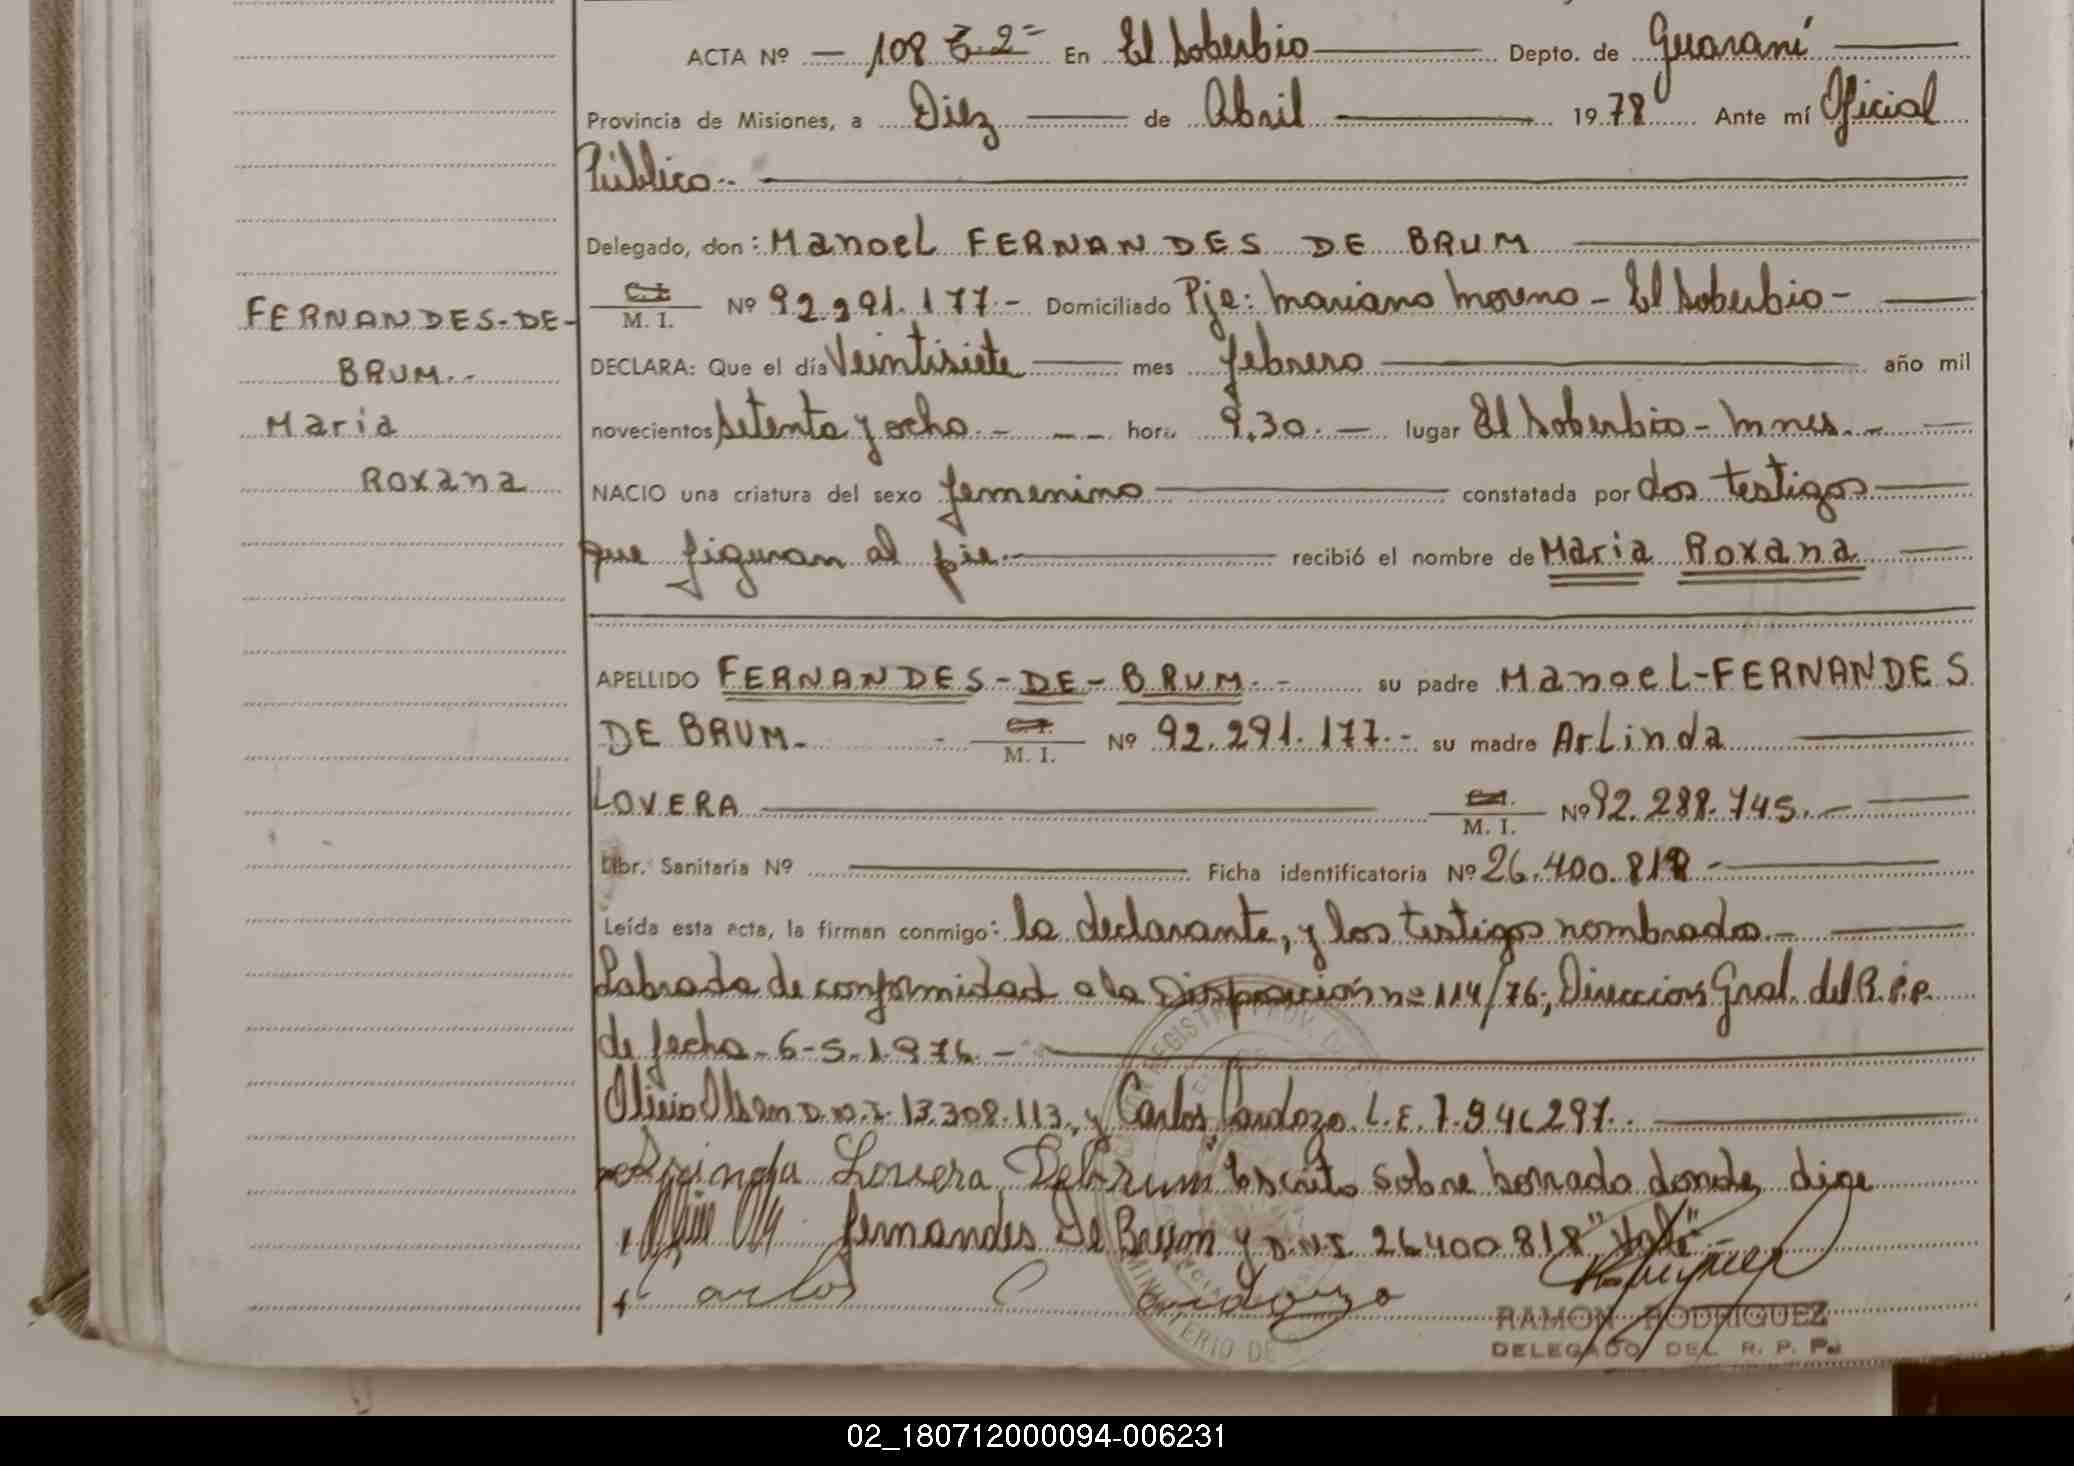 ACTA Nº - 108 T. 2= En El Soberbio Depto. de Guaraní
Provincia de Misiones, a Diez de Abril 1978 Ante mí Oficial
Público.-
Delegado, don: Manoel FERNANDES DE BRUM
C.I. M. I. Nº 92.291.177.- Domiciliado Pje: Mariano Moreno - El Soberbio -
FERNANDES-DE-
BRUM.-
Maria
Roxana
DECLARA: Que el día Veintisiete mes febrero año mil
novecientos setenta y ocho.- hora 9,30.- lugar El Soberbio - Mnes.-
NACIO una criatura del sexo femenino constatada por dos testigos
que figuran al pie.- recibió el nombre de Maria Roxana
APELLIDO FERNANDES-DE-BRUM.- su padre Manoel-FERNANDES
DE BRUM.- M. I. Nº 92.291.177.- su madre ArLinda
LOVERA M. I. Nº 92.288.745.-
Libr. Sanitaria Nº Ficha identificatoria Nº 26.400.818 -
Leída esta acta, la firman conmigo: la declarante, y los testigos nombrados.-
Labrada de conformidad a la Disposición nº 114/76, Dirección Gral. del R.P.P.
de fecha - 6-5-1.976.-
Olirio Olsen D.N.I. 13.308.113., y Carlos Cardozo. L.E. 7.946297.
Lovera DeBrum "Escrito sobre borrado donde dige
fernandes De Brum y D.N.I. 26400818" Vale"-
Carlos Cardozo
RAMON RODRIGUEZ
DELEGADO DEL R. P. P.
02_180712000094-006231